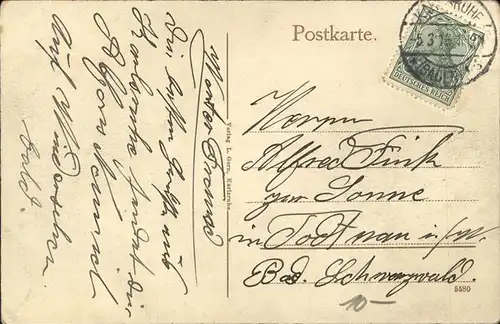 Postkarte.
KARLSRUHE
5.3.
(BADEN)
DEUTSCHES REICH
Werter Freund
Die besten Grüße aus
Karlsruhe sendet Dir
Auf Wiedersehen
bald.
Verlag L. Gern, Karlsruhe.
Herrn
Alfred Fink
zur Sonne
in Todtnau i/W.
Bad. Schwarzwald.
5580
10-